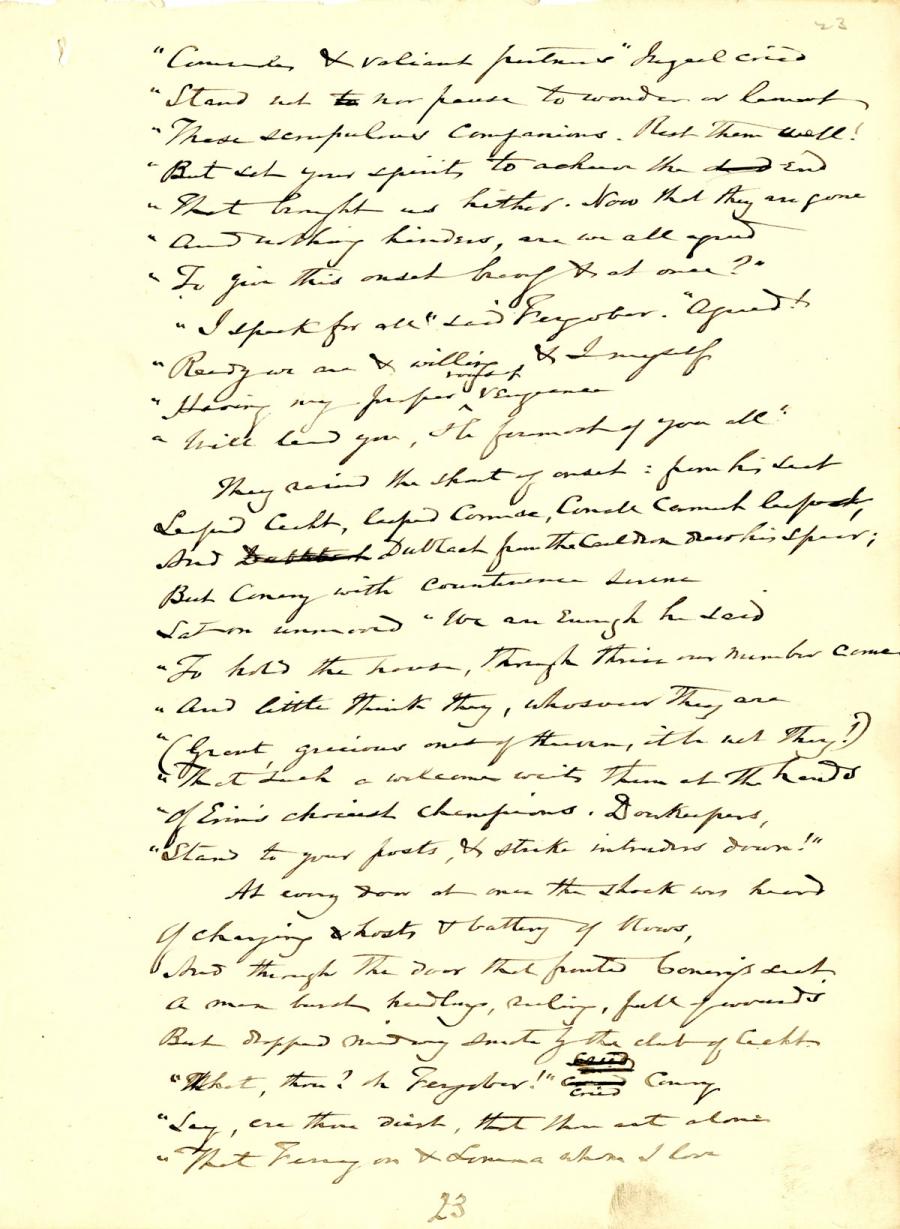 23
"Comrades & valiant partners" Ingcel cried
"Stand not to nor pause to wonder or lament
"These scrupulous Companions. Rest them well!
"But set your spirits to achieve the end End
"That brought us hither. Now that they are gone
"And nothing hinders, are we all agreed
"To give this onset bravely & at once?"
"I speak for all" said Fergobar. "Agreed!
"Ready we are & willing & I myself
"Having my proper vengeance
"Will lead you, I the foremost of you all"
They raised the shout of onset: from his seat
Leaped Cecht, leaped Cormac, Conall Carnach leaped,
And Dubtach Dubtach from the Caldron drew his spear;
But Conary with countenance serene
Sat on unmoved "We are Enough he said
"To hold the house, though thrice our number came
"And little think they, whosoever they are
"(Grant, gracious ones of Heaven, it be not they!)
"That such a welcome waits them at the hands
"Of Erin's choicest champions. Doorkeepers,
"Stand to your posts, & strike intruders down!"
At every door at once the shock was heard
Of charging hosts & battery of blows,
And through the door that fronted Conary's seat
A man burst headlong, reeling, full of wounds
But dropped midway smote by the club of Cecht.
"What, thou? oh Fergobar!" cried Conary
"Say, ere thou diest, that thou art alone
"That Ferragon & Lomna whom I love
23